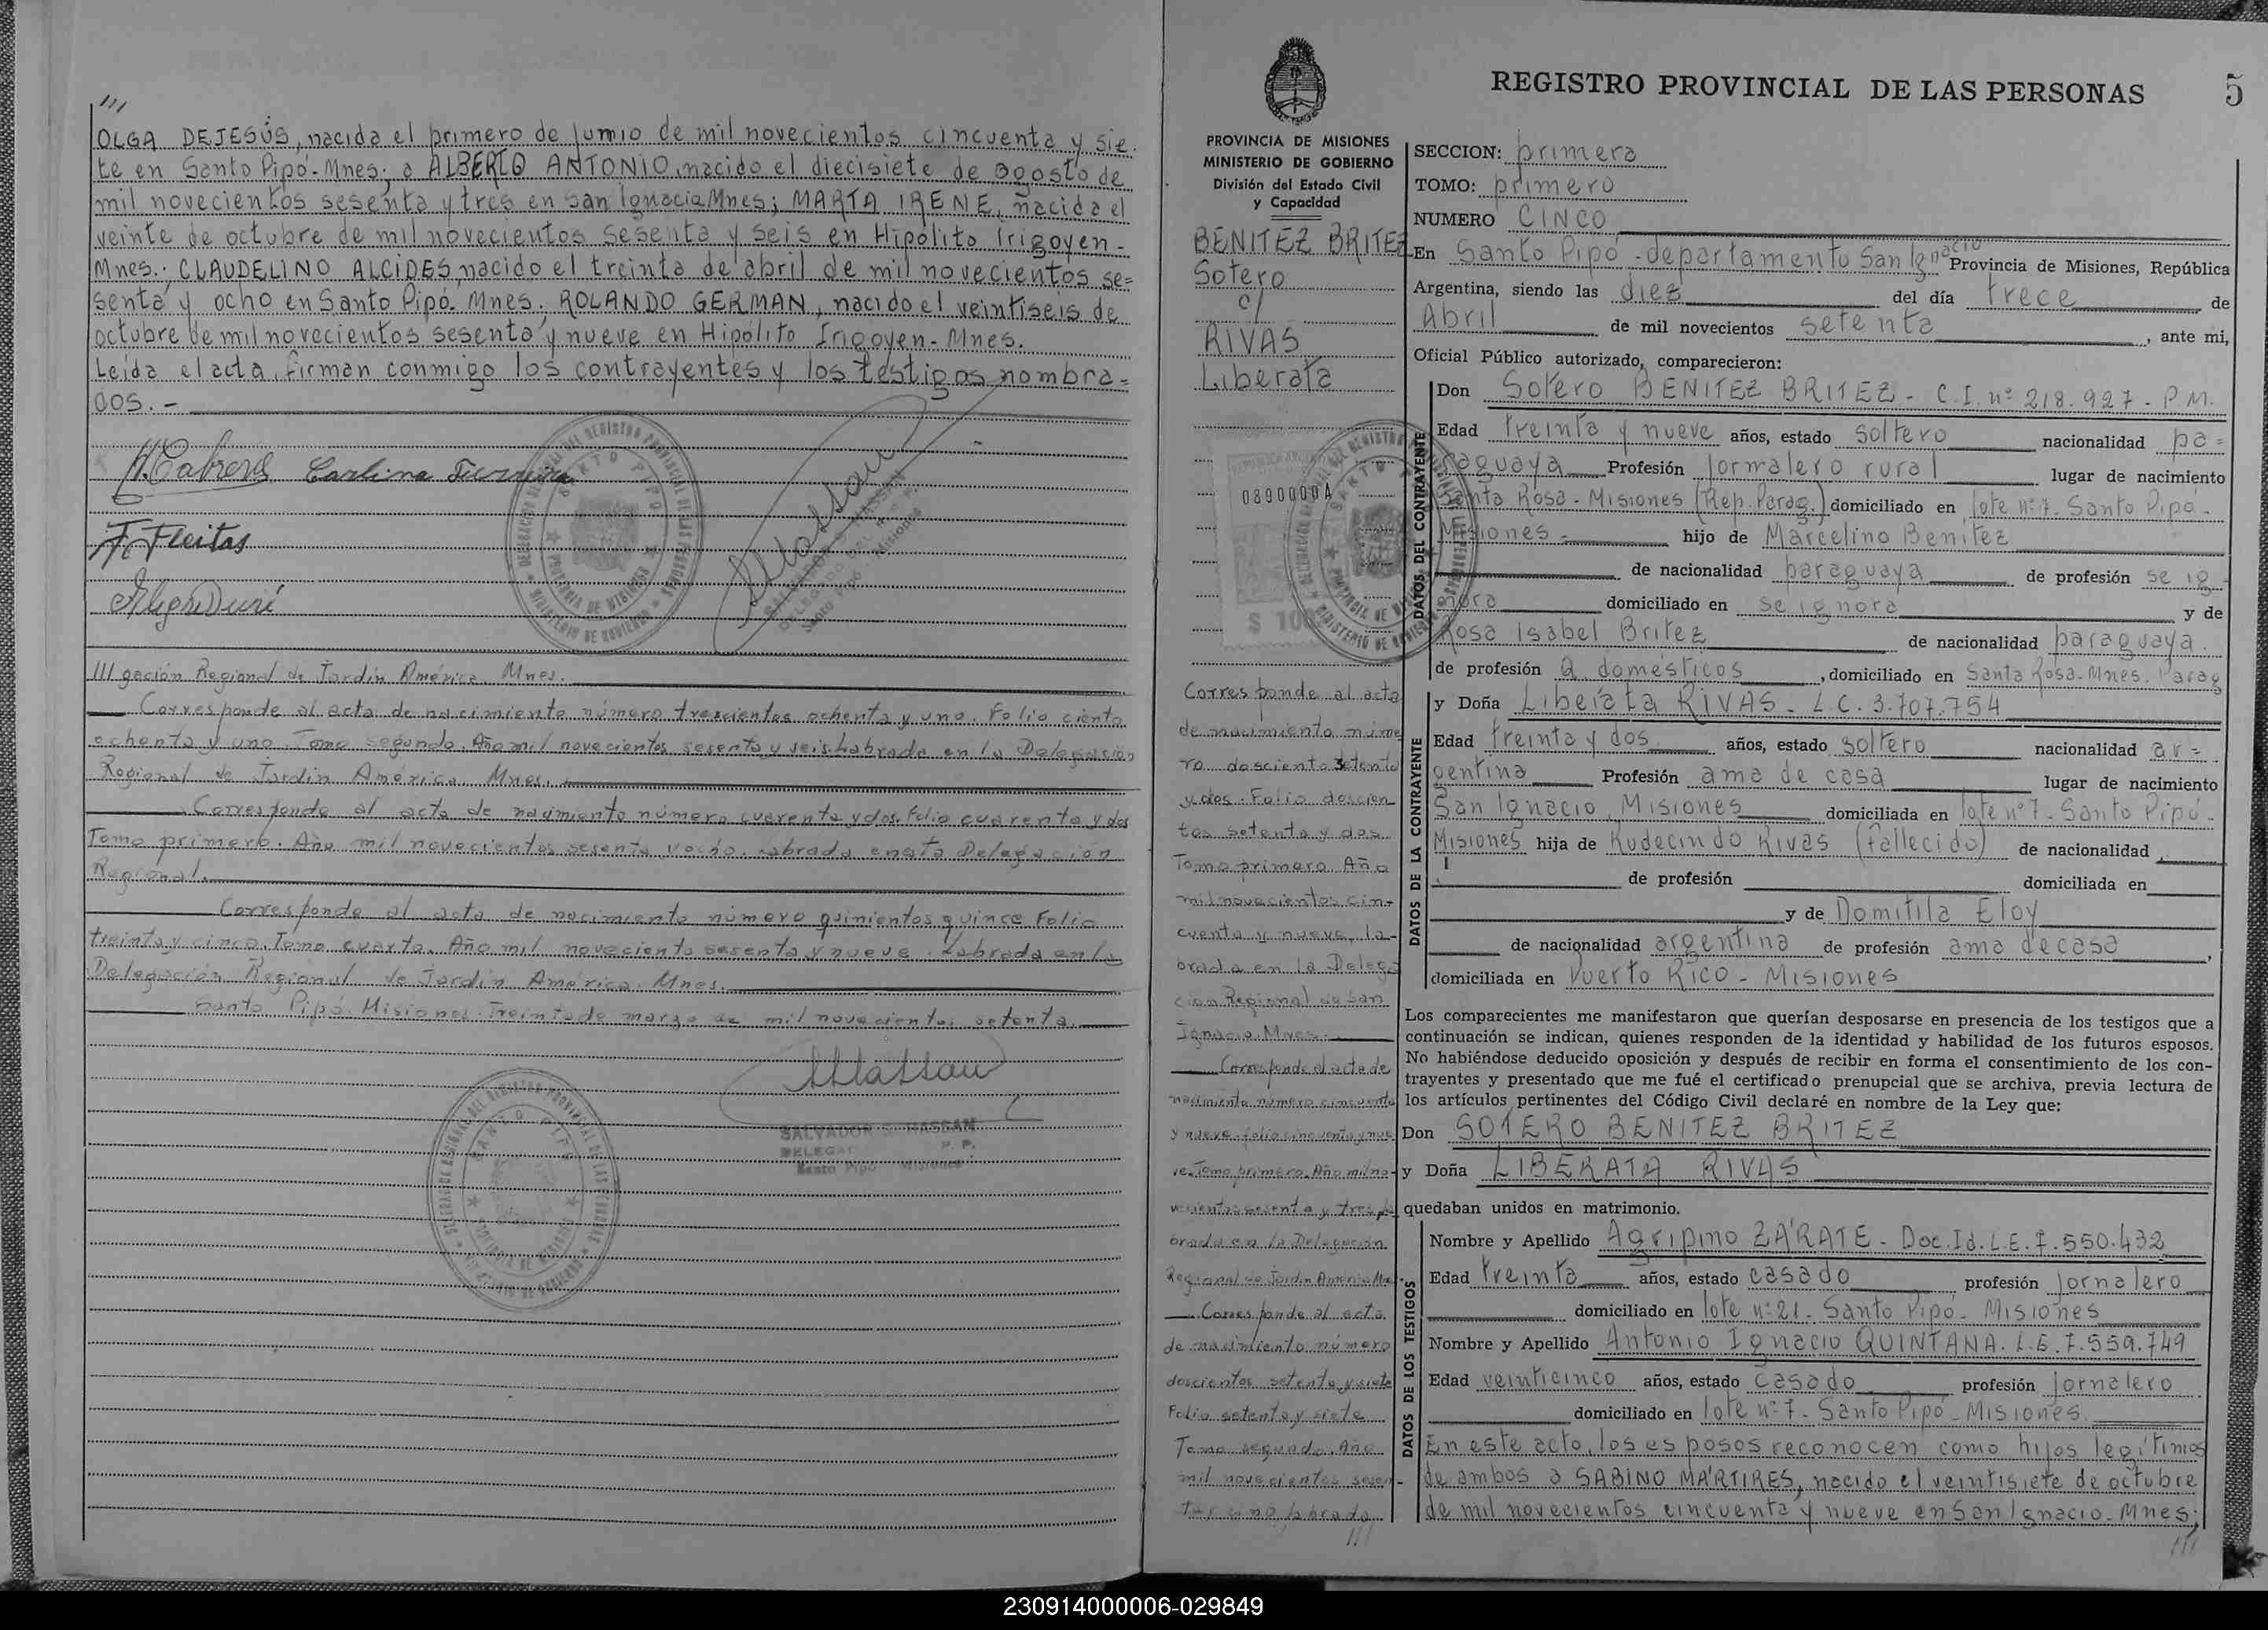 ///
OLGA DEJESÚS, nacida el primero de junio de mil novecientos cincuenta y sie-
te en Santo Pipó-Mnes; a ALBERTO ANTONIO, nacido el diecisiete de agosto de
mil novecientos sesenta y tres en San Ignacio Mnes; MARTA IRENE, nacida el
veinte de octubre de mil novecientos sesenta y seis en Hipólito Irigoyen-
Mnes.; CLAUDELINO ALCIDES, nacido el treinta de abril de mil novecientos se=
senta y ocho en Santo Pipó. Mnes; ROLANDO GERMAN, nacido el veintiseis de
octubre de mil novecientos sesenta y nueve en Hipólito Irigoyen- Mnes.
Leída el acta, firman conmigo los contrayentes y los testigos nombra=
dos.-
Cabrera Carlina
F. Fleitas
/// gación Regional de Jardín América. Mnes.
Corresponde al acta de nacimiento número trescientos ochenta y uno. Folio ciento
ochenta y uno. Tomo segundo. Año mil novecientos sesenta y seis. Labrada en la Delegación
Regional de Jardín América. Mnes.
Corresponde al acta de nacimiento número cuarenta y dos. Folio cuarenta y dos
Tomo primero. Año mil novecientos sesenta y ocho. Labrada en esta Delegación
Regional.
Corresponde al acta de nacimiento número quinientos quince Folio
treinta y cinco. Tomo cuarto. Año mil noveciento sesenta y nueve. Labrada en la
Delegación Regional de Jardín América. Mnes.
Santo Pipó. Misiones. Treinta de marzo de mil novecientos setenta.
SALVADOR S. HASSAN
DELEGADO R. P. P.
Santo Pipó - Misiones
PROVINCIA DE MISIONES
MINISTERIO DE GOBIERNO
División del Estado Civil
y Capacidad
BENITEZ BRITEZ
Sotero
c/
RIVAS
Liberata
0890000A
$ 100
Corresponde al acta
de nacimiento núme
ro dosciento setenta
y dos. Folio doscien
tos setenta y dos.
Tomo primero. Año
mil novecientos cin-
cuenta y nueve, la-
brada en la Delega
ción Regional de San
Ignacio. Mnes.
Corresponde al acta de
nacimiento número cincuenta
y nueve folio cincuenta y nue
ve. Tomo primero. Año mil no-
vecientos sesenta y tres la
brada en la Delegación
Regional de Jardín América Mnes.
Corresponde al acta
de nacimiento número
doscientos setenta y siete
Folio setenta y siete
Tomo segundo. Año
mil novecientos sesen-
labrada
///
REGISTRO PROVINCIAL DE LAS PERSONAS 5
SECCION: primera
TOMO: primero
NUMERO CINCO
En Santo Pipó - departamento San Ignacio Provincia de Misiones, República
Argentina, siendo las diez del día trece de
Abril de mil novecientos setenta, ante mi,
Oficial Público autorizado, comparecieron:
DATOS DEL CONTRAYENTE
Don Sotero BENITEZ BRITEZ - C.I. nº 218.927 - P.M.
Edad treinta y nueve años, estado soltero nacionalidad pa=
raguaya Profesión jornalero rural lugar de nacimiento
Santa Rosa - Misiones (Rep. Parag.) domiciliado en lote nº 7. Santo Pipó.
Misiones - hijo de Marcelino Benitez
de nacionalidad paraguaya de profesión se ig-
nora domiciliado en se ignora y de
Rosa Isabel Britez de nacionalidad paraguaya.
de profesión q. domésticos, domiciliado en Santa Rosa-Mnes. Parag
DATOS DE LA CONTRAYENTE
y Doña Liberata RIVAS - L.C. 3.707.754
Edad treinta y dos años, estado soltero nacionalidad ar=
gentina Profesión ama de casa lugar de nacimiento
San Ignacio, Misiones domiciliada en lote nº 7 - Santo Pipó -
Misiones hija de Rudecindo Rivas (fallecido) de nacionalidad
de profesión domiciliada en
y de Domitila Eloy
de nacionalidad argentina de profesión ama de casa,
domiciliada en Puerto Rico - Misiones
Los comparecientes me manifestaron que querían desposarse en presencia de los testigos que a
continuación se indican, quienes responden de la identidad y habilidad de los futuros esposos.
No habiéndose deducido oposición y después de recibir en forma el consentimiento de los con-
trayentes y presentado que me fué el certificado prenupcial que se archiva, previa lectura de
los artículos pertinentes del Código Civil declaré en nombre de la Ley que:
Don SOTERO BENITEZ BRITEZ
y Doña LIBERATA RIVAS
quedaban unidos en matrimonio.
DATOS DE LOS TESTIGOS
Nombre y Apellido Agripino ZÁRATE - Doc. Id. L.E. 7.550.432
Edad treinta años, estado casado profesión jornalero
domiciliado en lote nº 21. Santo Pipó - Misiones
Nombre y Apellido Antonio Ignacio QUINTANA. L.E. 7.559.749
Edad veinticinco años, estado casado profesión jornalero
domiciliado en lote nº 7 - Santo Pipó - Misiones.
En este acto, los esposos reconocen como hijos legítimos
de ambos a SABINO MÁRTIRES, nacido el veintisiete de octubre
de mil novecientos cincuenta y nueve en San Ignacio - Mnes;
///
230914000006-029849